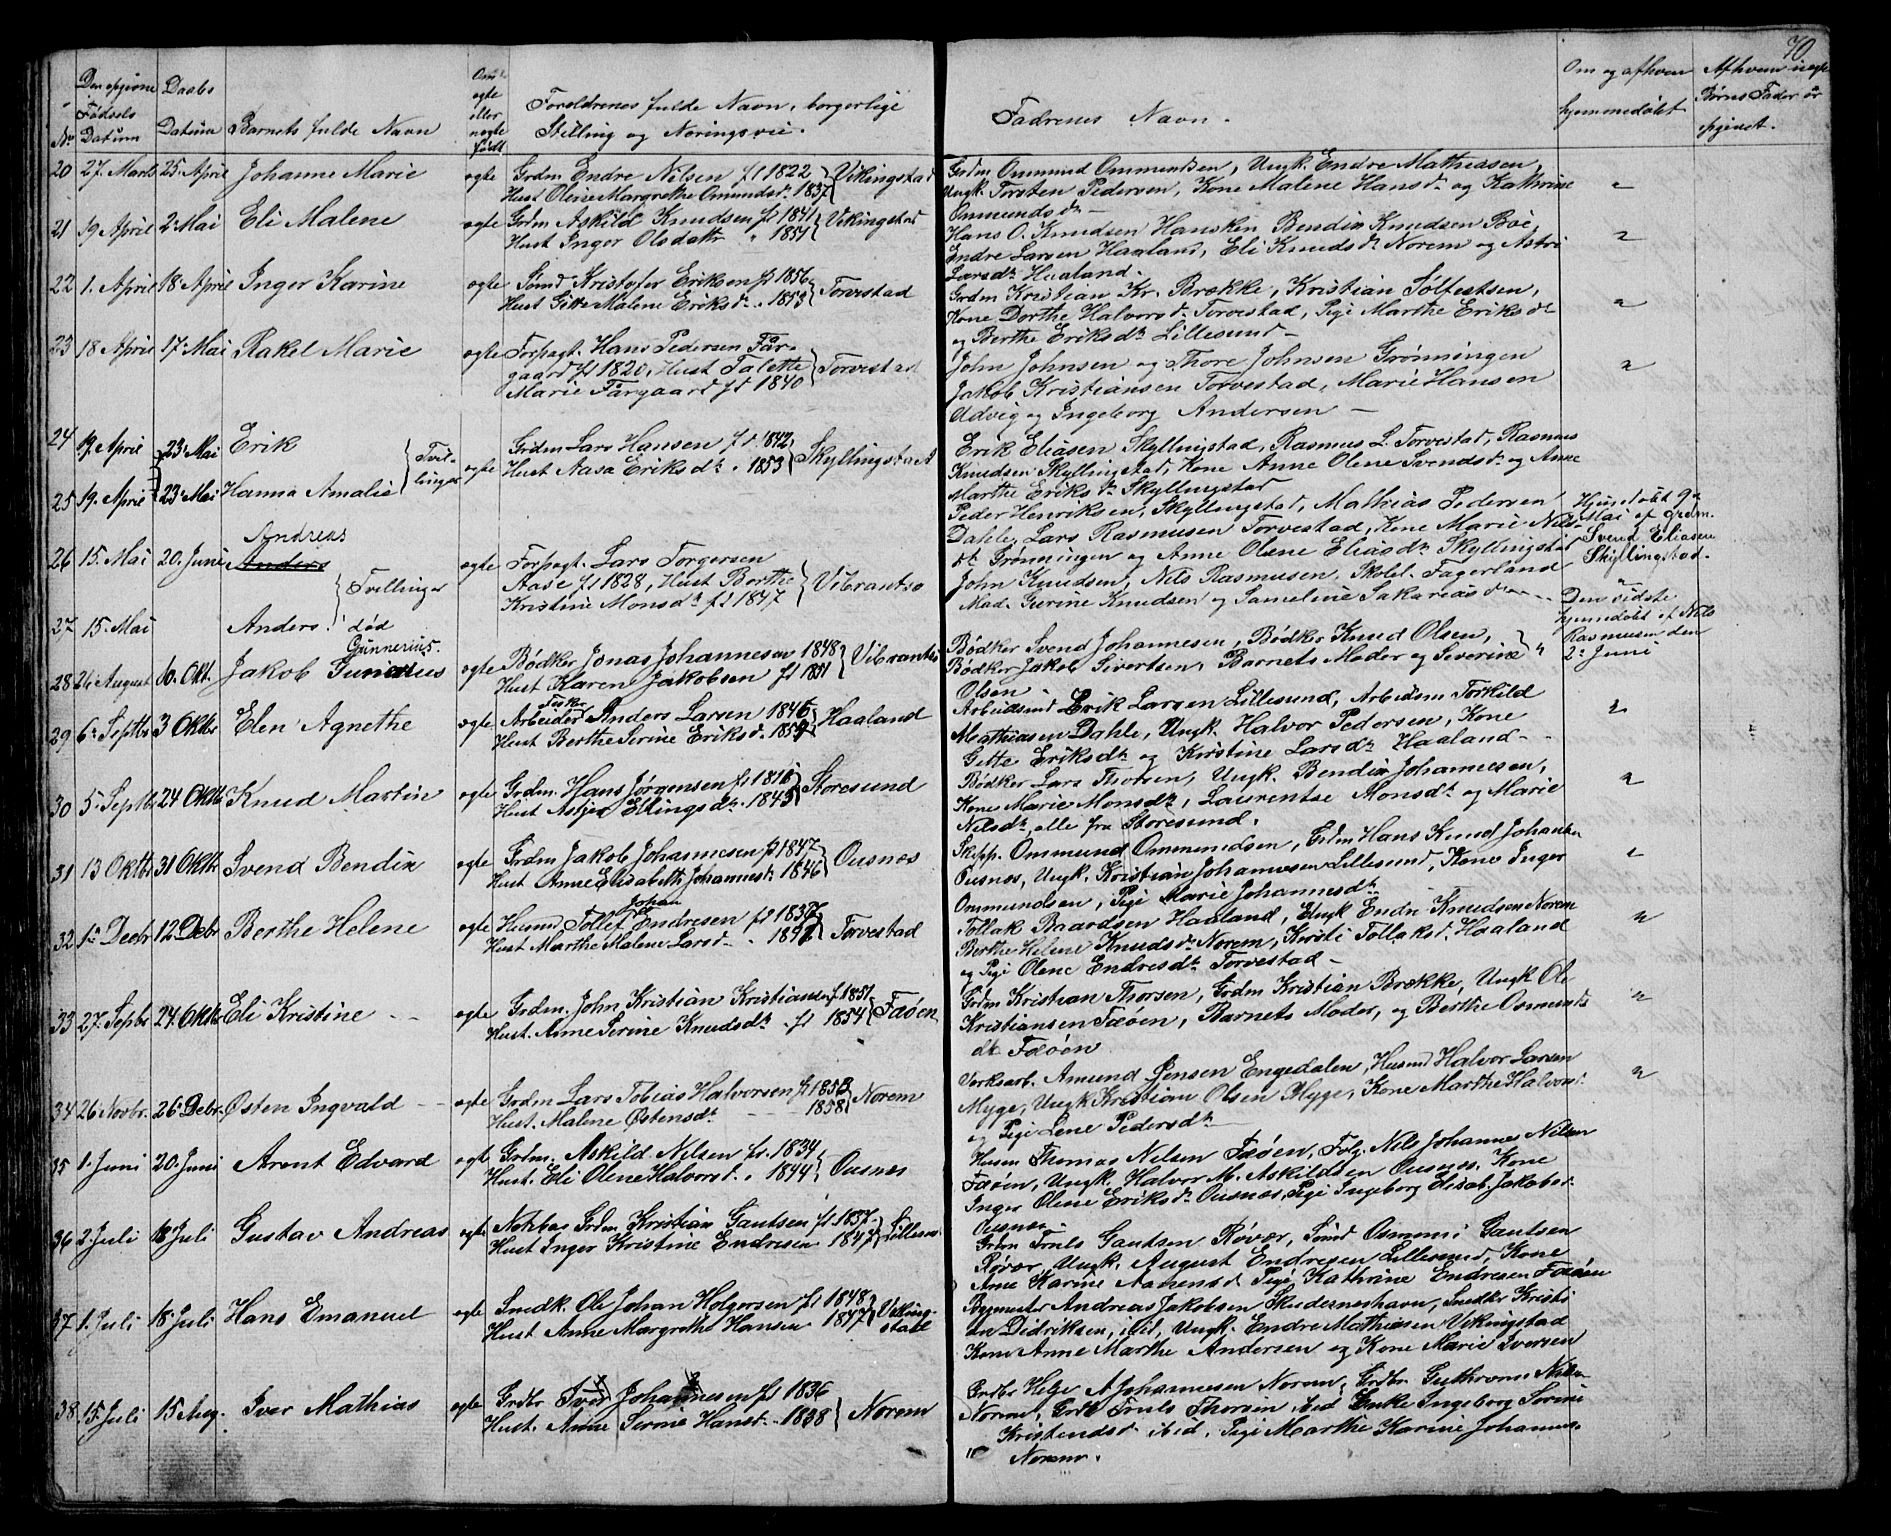 70
No Den opgivne Fødsels Datum
Daabs Datum
Barnets fulde Navn
Om ægte eller uægte født
Forældrenes fulde Navn, borgerlige Stilling og Næringsvei.
Fadrenes Navn.
Om og af hvem hjemmedøbt
Af hvem uægte Børns Fader er opgivet.
20 27. Marts 25. April Johanne Marie ægte Grdm Endre Nilsen ft 1822 Vikingstad
Hust Oline Margrethe Omundsdr. 1837
Grdm Ommund Ommundsen, Ungk. Endre Mathiassen,
Ungk. Torsten Pedersen, Kone Malene Hansdr og Kathrine
Ommundsdr
21 19 April 2 Mai Eli Malene ægte Grdm Askild Knudsen ft 1841 Vikingstad
Hust Inger Olsdattr " 1851
Hans O. Knudsen Hansken Bendix Knudsen Bøe,
Endre Larsen Haaland, Eli Knudsdr Norem og Astri
Larsdr Haaland.
22 1. April 18 April Inger Karine ægte Smd Kristofer Eriksen ft 1856 Torvestad
Hust Gitte Malene Eriksdr. 1853
Grdm Kristian Kr. Brække, Kristian Solfestsen,
Kone Dorthe Halvorsdr Torvestad, Pige Marthe Eriksdr
og Berthe Eriksdr Lillesund
23 18 April 17 Mai Rakel Marie ægte Forpagt. Hans Pedersen Får-
gaard ft 1820, Hust Talette Torvestad
Marie Fårgaard ft 1840
John Johnsen og Thore Johnsen Grønningen
Jakob Kristiansen Torvestad, Marie Hansen
Udvig og Ingeborg Andersen
24 19. April 23 Mai Erik Tvil-
linger
ægte Grdm Lars Hansen ft 1842 Skyllingstad
Hust Aasa Eriksdr. 1853
Erik Eliasen Skyllingstad, Rasmus L. Torvestad, Rasmus
Knudsen Skyllingstad, Kone Anne Olene Svendsdr og Anne
Marthe Eriksdr Skyllingstad
25 19. April 23 Mai Hanna Amalie
Peder Henriksen, Skyllingstad, Mathias Pedersen
Dahle, Lars Rasmusen Torvestad, Kone Marie Nils-
dr Grønningen og Anne Olene Eliasdr Skyllingstad
Hjemedøbt 9de
Mai af Grdm.
Svend Eliasen
Skyllingstad.
26 15. Mai 20. Juni Anders Andreas Tvillinger
ægte Forpagt. Lars Torgersen
Aase ft 1828, Hust Berthe Vibrantsø
Kristine Monsdr ft 1847
John Knudsen, Nils Rasmusen, Skolel. Fagerland
Mad. Gurine Knudsen og Sameline Sakariasdr
27 15. Mai Anders. død
Den sidste
hjemedøbt af Nils
Rasmusen den
2. Juni
28 26 August 10. Okt. Jakob Gunerius Gunnerius. ægte Bødker Jonas Johannesen 1848 Vibrantsø
Hust Karen Jakobsen ft 1851
Bødker Svend Johannesen, Bødker Knud Olsen,
Bødker Jakob Sivertsen, Barnets Moder og Severine
Olsen
29 6 Septbr 3 Oktbr Elen Agnethe ægte Arbeider Fisker Anders Larsen 1846 Haaland
Hust Berthe Serine Eriksd. 1854
Arbeidsmd Erik Larsen Lillesund, Arbeidsm Torkild
Mathiasen Dahle, Ungk. Halvor Pedersen, Kone
Gitte Eriksdr og Kirstine Larsdr Haaland
30 5 Septbr 24 Oktbr Knud Martin ægte Grdm. Hans Jørgensen ft 1816 Storesund
Hust Astjea Ellingsdr. 1843
Bødker Lars Thorsen, Ungk. Bendix Johannesen,
Kone Marie Monsdr, Laurentse Monsdr og Marie
Nilsdr, alle fra Storesund.
31 13 Oktbr 31 Oktbr Svend Bendix ægte Grdm Jakob Johannesen ft 1847 Ousnes
Hust Anne Elisabeth Johannesdr 1846
Skipp. Ommund Ommundsen, Grdm Hans Knud Johansen
Ousnes, Ungk. Kristian Johannesen Lillesund, Kone Inger
Ommundsen, Pige Marie Johannesdr
32 1. Decbr 12 Debr Berthe Helene ægte Husmd Tollef Johan Endresen ft 1836 Torvestad
Hust Marthe Malene Larsd 1842
Tollak Baardsen Haaland, Ungk Endre Knudsen Norem
Berthe Helene Knudsdr Norem, Kirsti Tollaksd. Haaland
og Pige Olene Endresdr Torvestad
33 27. Sepbr 24 Oktbr Eli Kristine ægte Grdm. John Kristian Kristiansen ft 1851 Fæøen
Hust. Anne Serine Knudsdr ft 1854
Grdm Kristian Thorsen, Grdm Kristian Brække, Ungk Ole
Kristiansen Fæøen, Barnets Moder, og Berthe Osmunds
dr Fæøen
34 26 Novbr. 26 Debr. Østen Ingvald ægte Grdm Lars Tobias Halvorsen ft 1853 Norem
Hust. Malene Østensdr 1858
Verksarb. Amund Jensen Engedalen, Husmd Halvor Larsen
Myge, Ungk Kristian Olsen Myge, Kone Marthe Halvorsd.
og Pige Lene Pedersdr
35 1. Juni 20. Juni Arent Edvard ægte Grdm. Askild Nilsen ft. 1834 Ousnes
Hust. Eli Olene Halvorsd. 1844
Husm Thomas Nilsen Fæøen, Folg. Nils Johannes Nilsen
Fæøen, Ungk. Halvor M. Askildsen Ousnes, Kone
Inger Olene Eriksdr Ousnes, Pige Ingeborg Elisab. Jakobsd.
Ousnes
36 2. Juli 18 Juli Gustav Andreas ægte Notebas Grdm. Kristian Gautsen ft. 1837 Lillesund
Hust Inger Kristine Endresen 1847
Grdm Truls Gautsen Røvær, Smd Osmond Gautsen
Røvær, Ungk. August Endresen Lillesund, Kone
Ane Karine Aanensd. Pige Kathrine Endresen Fæøen
37 1. Juli 18 Juli Hans Emanuel ægte Snedk. Ole Johan Holgersen ft 1848 Viking-
Hust Anne Margrethe Hansen 1847 stad
Bygmester Andreas Jakobsen Skudeneshavn, Snedker Kristi
an Didriksen, ibid, Ungk. Endre Mathiesen Vikingstad
Kone Anne Marthe Andersen og Kone Marie Iversen
38 15. Juli 15 Aug. Iver Mathias ægte Grdbr Iver Johannesen ft 1836 Norem
Hust. Anne Serine Hansd. 1838
Grdbr Helge A Johannesen Norem, Grdbr. Guthrom Nilsen
Norem, Grdb Truls Thorsen ibid Enke Ingeborg Serine
Kristensdr ibid, Pige Marthe Karine Johannes.
Norem.